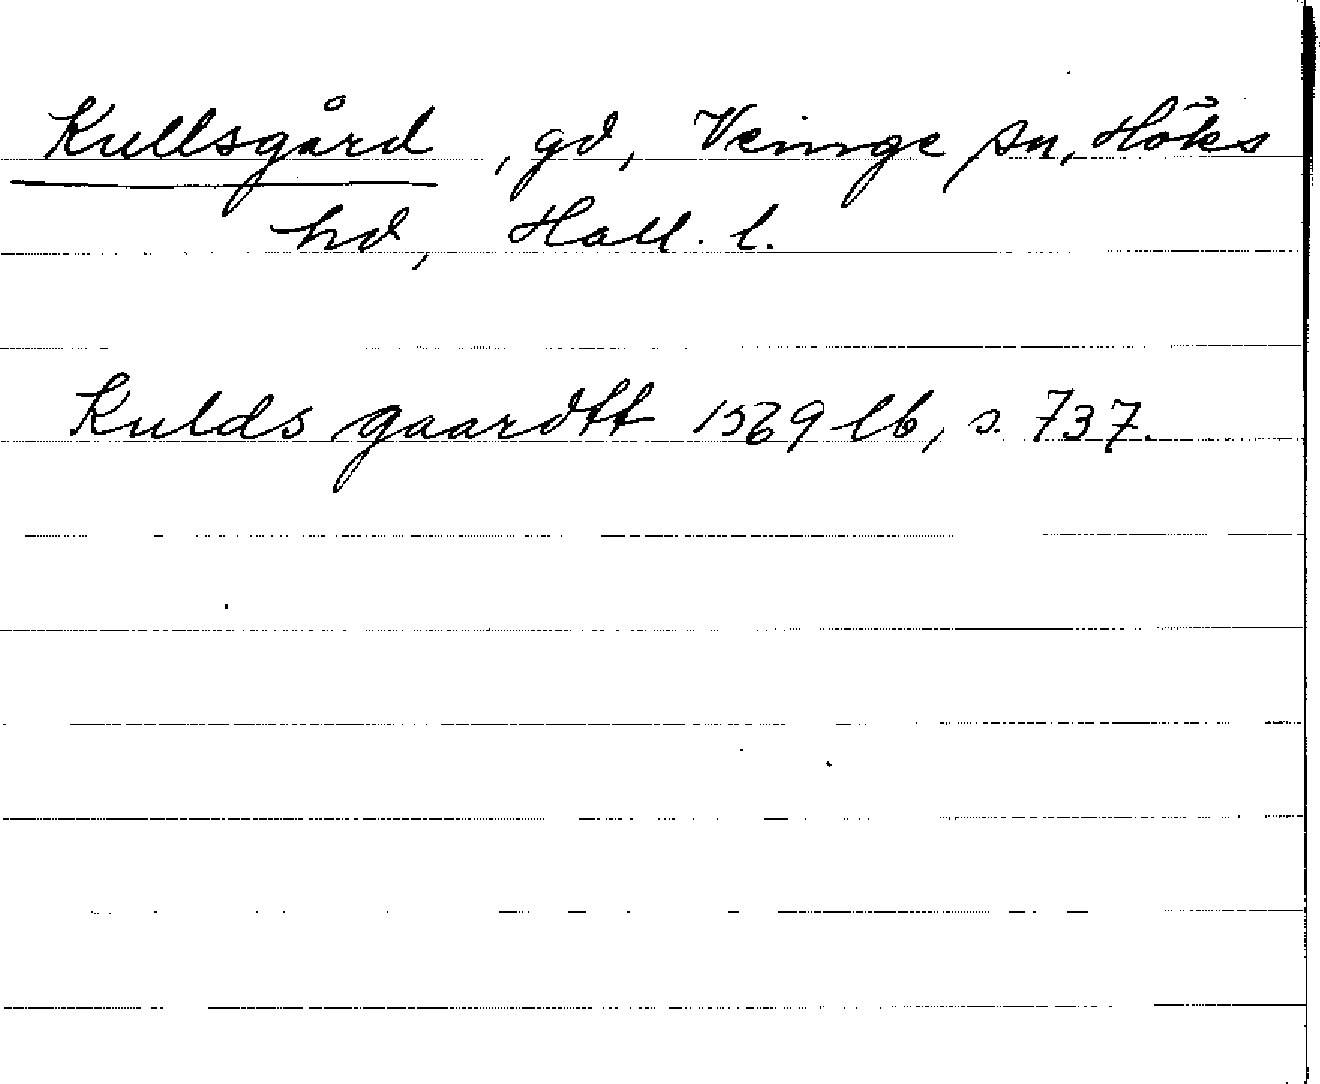 Kullsgård, gd, Veinge sn, Höks
hd, Hall. l.
Kulds gaardtt 1569 lb, s. 737.